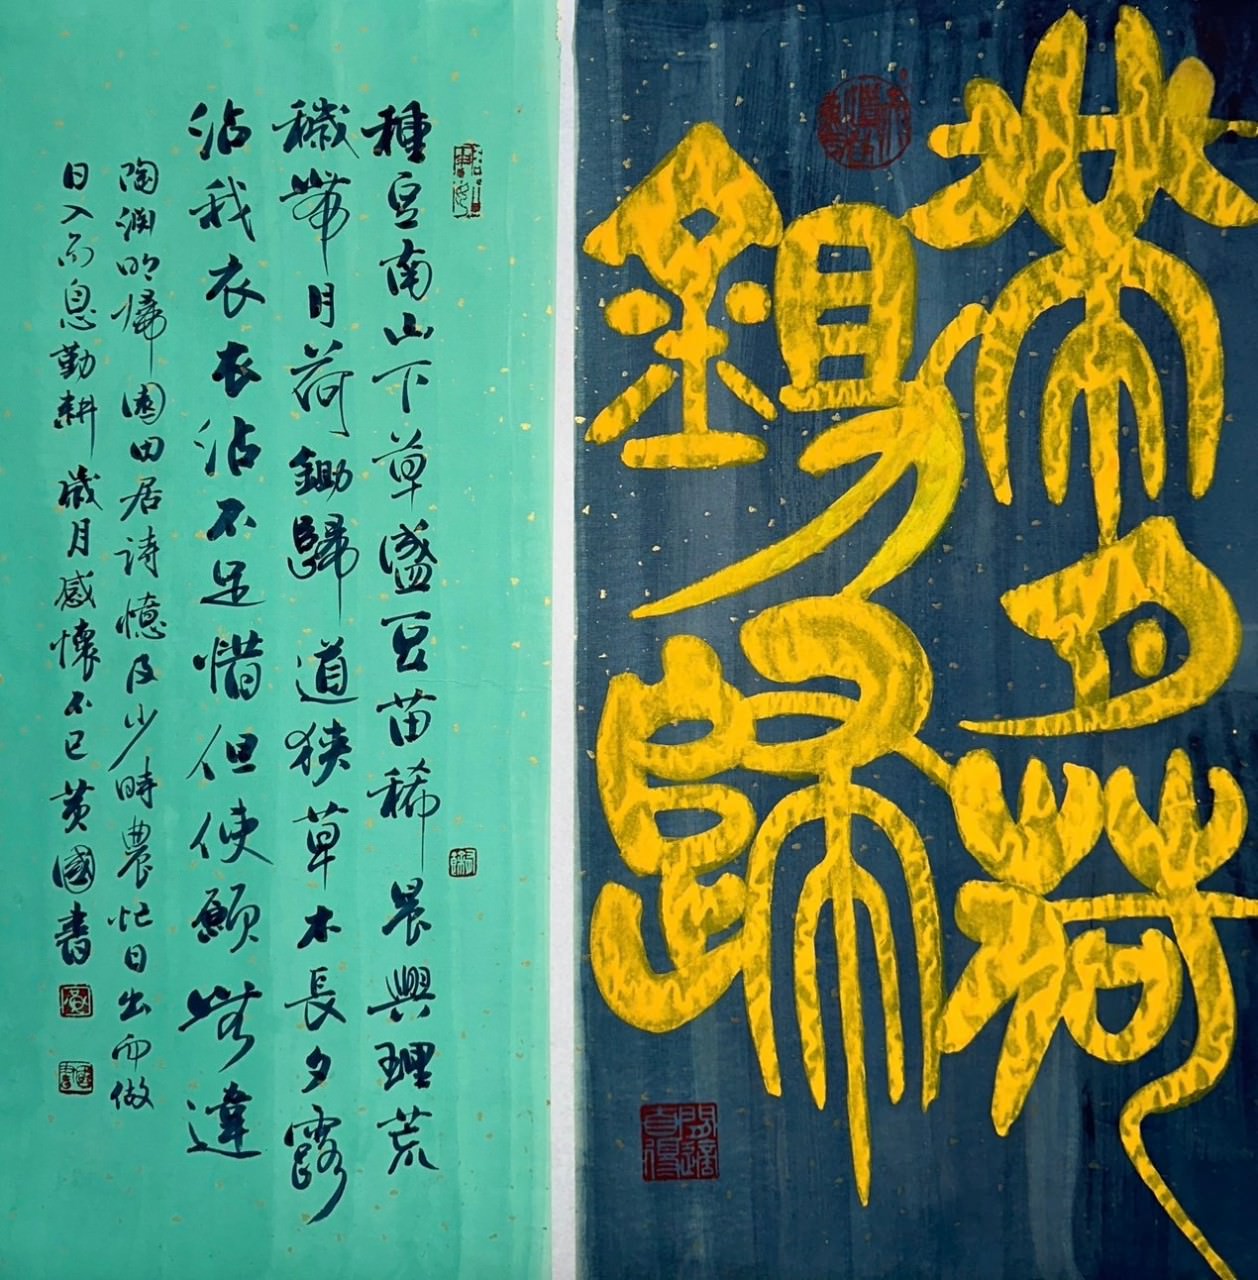 帶月荷
鋤歸
種豆南山下草盛豆苗稀晨興理荒
穢帶月荷鋤歸道狹草木長夕露
沾我衣衣沾不足惜但使願無違
陶淵明歸園田居詩憶及少時農忙日出而做
日入而息勤耕歲月感懷不已黃國書